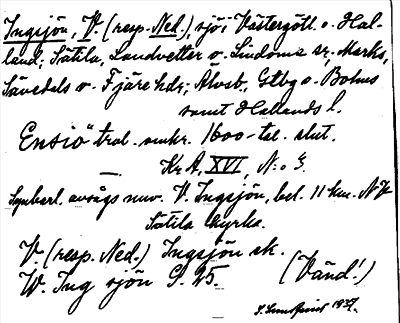 Ingsjön, V. (resp. Ned.), sjö i Västergötl. o. Hal-
land; Sätila, Landvetter o. Lindome sr; Marks,
Sävedals o. Fjäre hdr; Älvsb., Gtbg o. Bohus
samt Hallands l.
"Ensiö" trol. omkr. 1600-tal. slut.
K. A, XVI, N:o
Synbarl. avs. nuv. V. Ingsjön, bel. 11 km. NV
Sätila kyrka.
V. (resp. Ned.) Ingsjön sk.
W. Ing sjön G. 25.
(Vänd!)
1937.